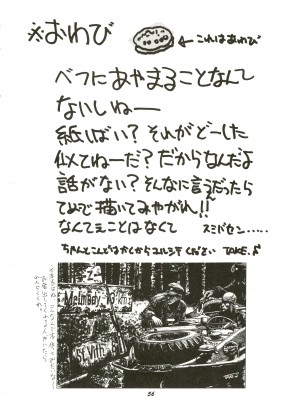 ※おわび
←これはあわび
べつにあやまることなんて
ないしねー
紙しばい?それがどーした
似てねーだ?だからなんだよ
話がない?そんなに言うだったら
てめーで描いてみやがれ!!
なんてことはなくて スミバセン.....
ちゃんとこんどはかくからユルシテください TAKE.
Malmedy
St.Vith
56